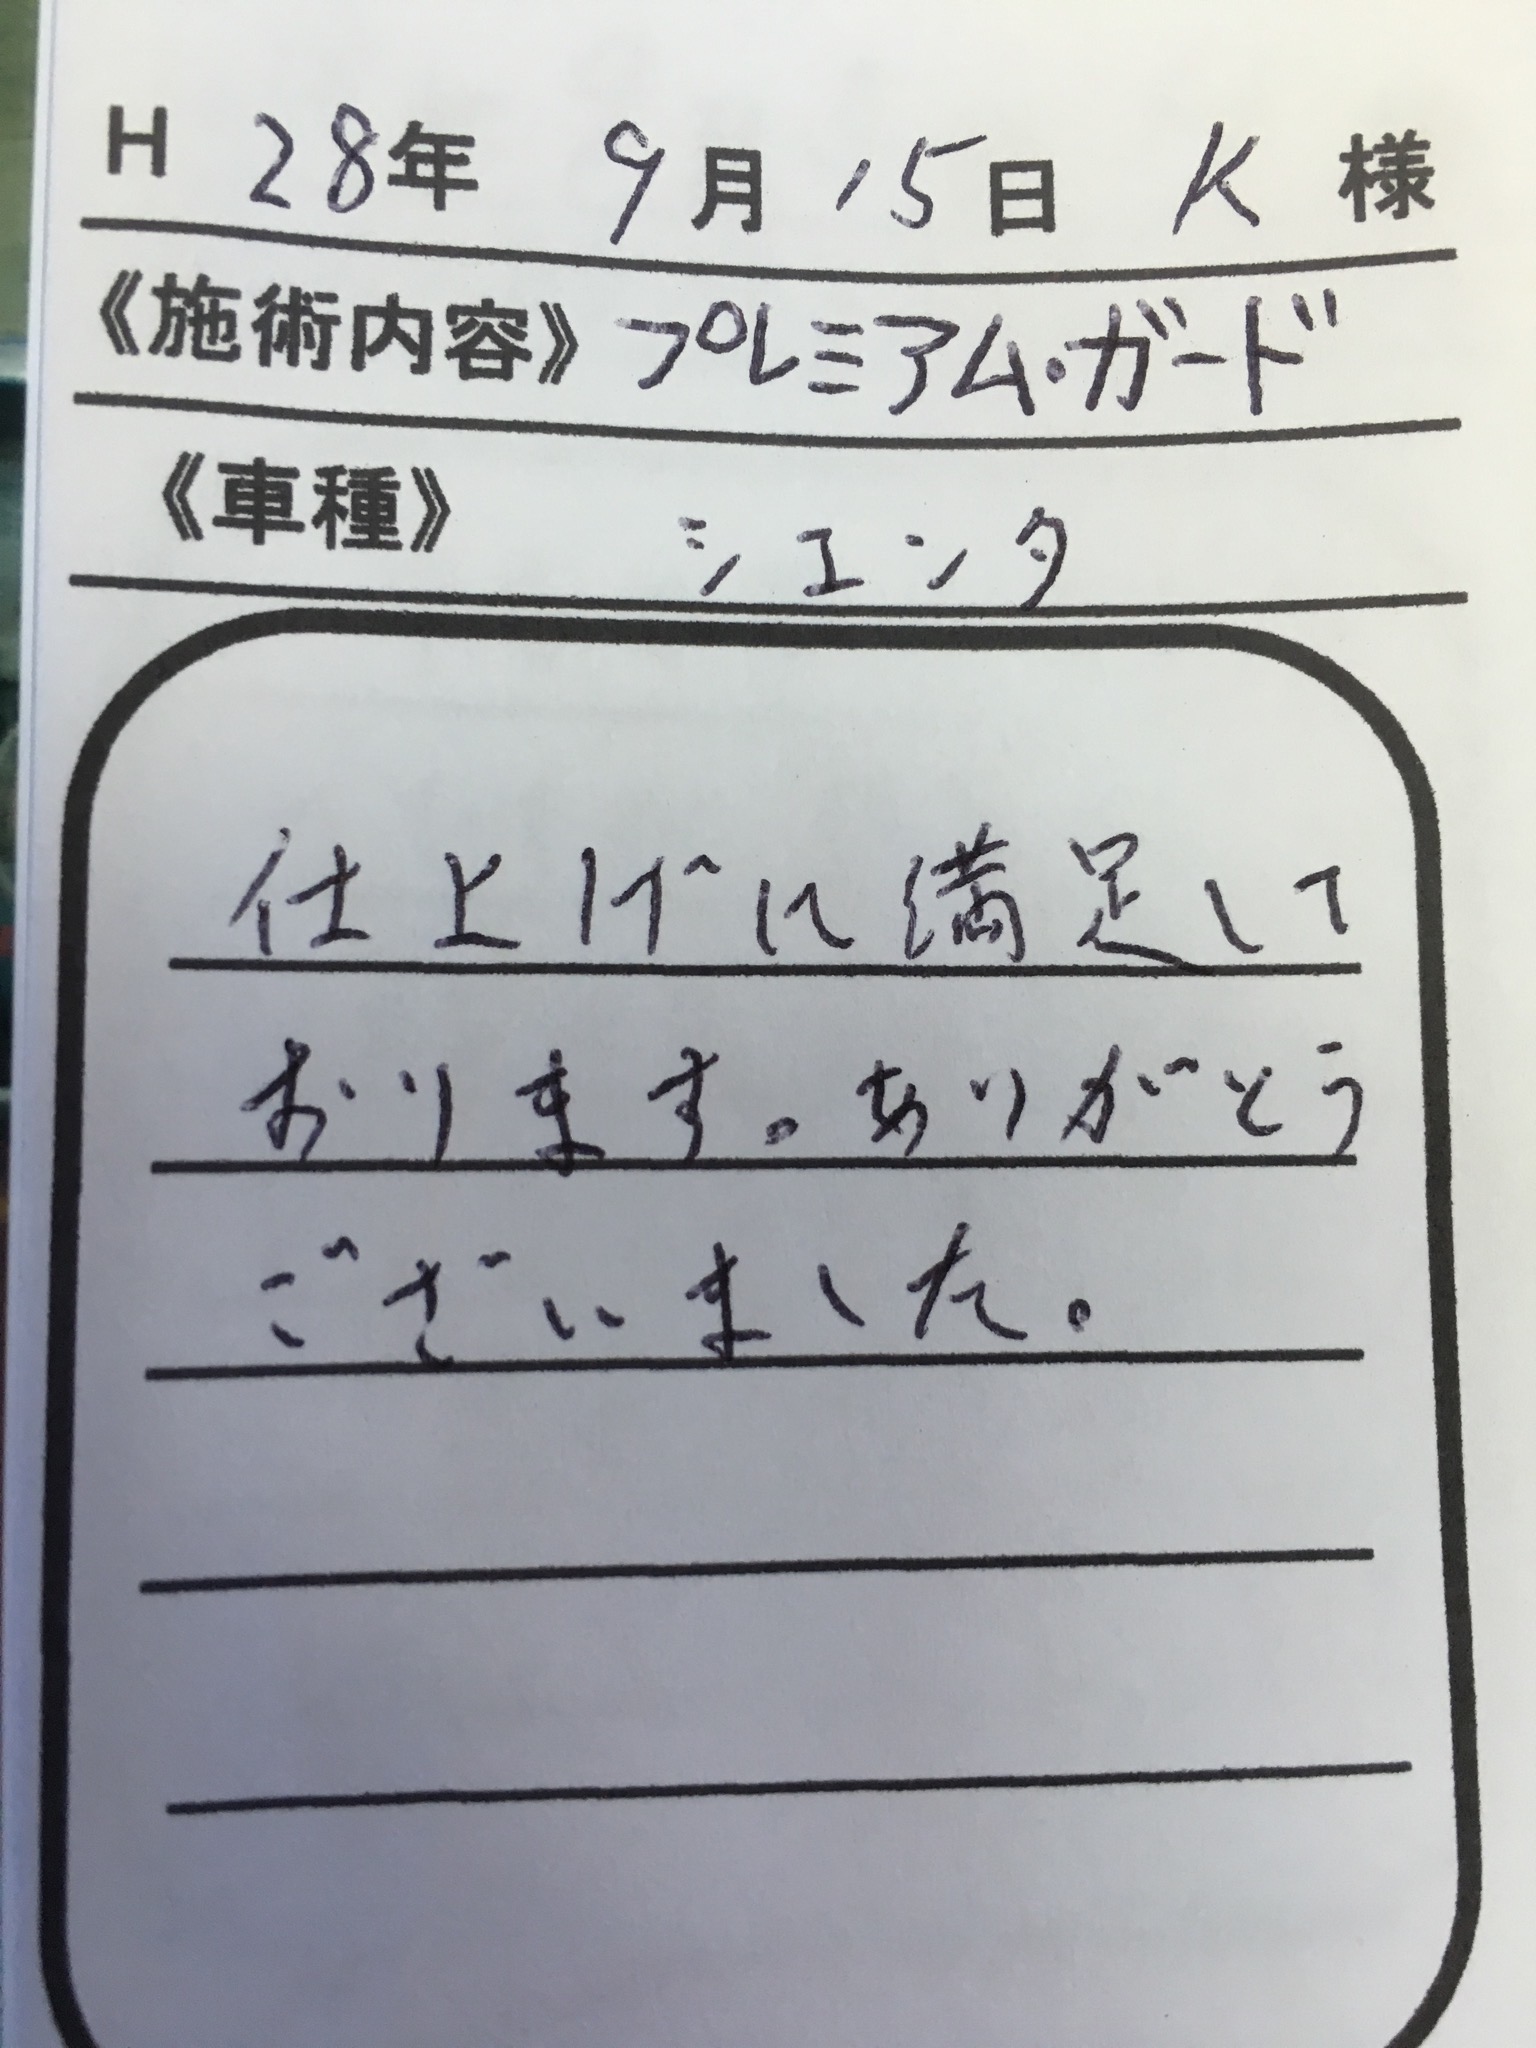 H 28年 9月 15日 K 様
《施術内容》プレミアム・ガード
《車種》 シエンタ
仕上げに満足して
おります。ありがとう
ございました。